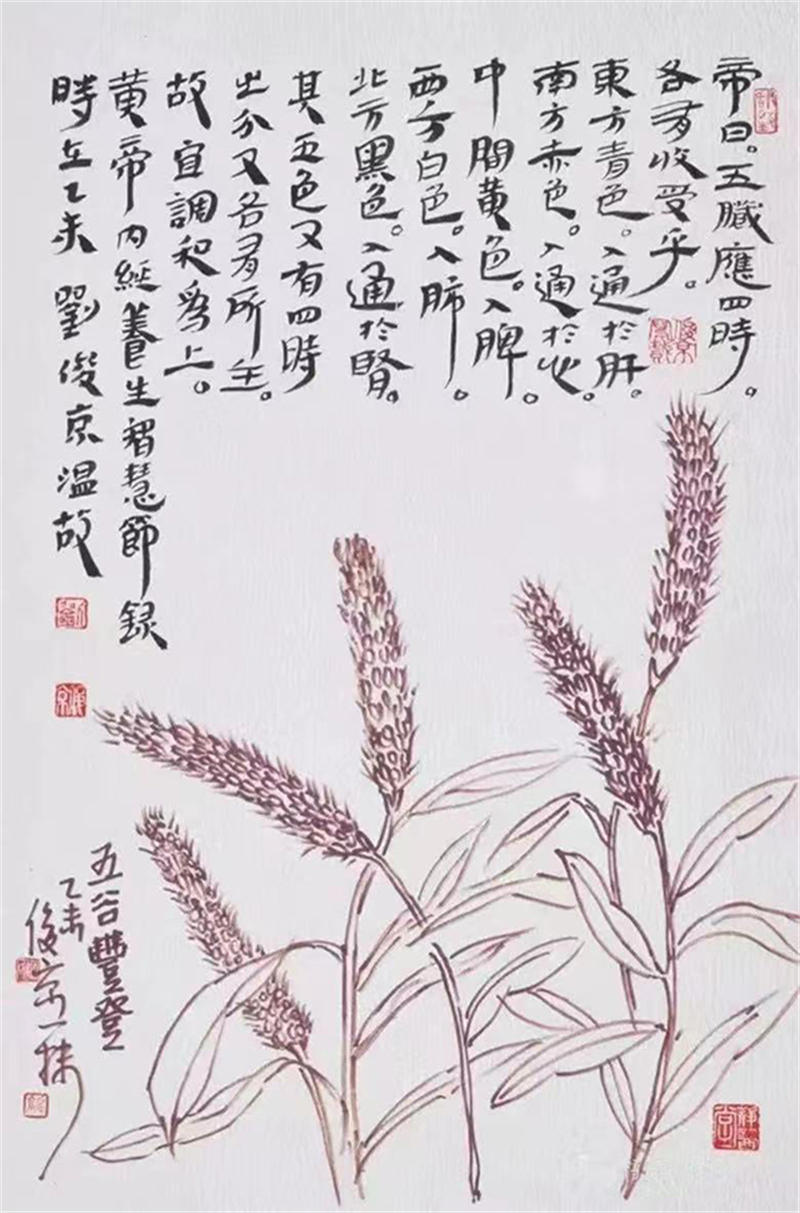 帝曰。五臟應四時。
各有收受乎。
東方青色。入通於肝。
南方赤色。入通於心。
中間黄色。入脾。
西方白色。入肺。
北方黑色。入通於腎。
其五色又有四時
之分又各有所主。
故宜調和為上。
黄帝内經養生智慧節録
時在乙未 劉俊京温故
五谷豐登
乙未
俊京一抹